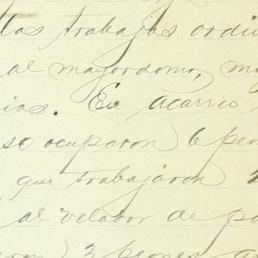 los trabajos ordi
al mayordomo, m
ias. En acarreo
se ocuparon 6 peo
que trabajaron 2
al velador de pa
aron) 2 peones a